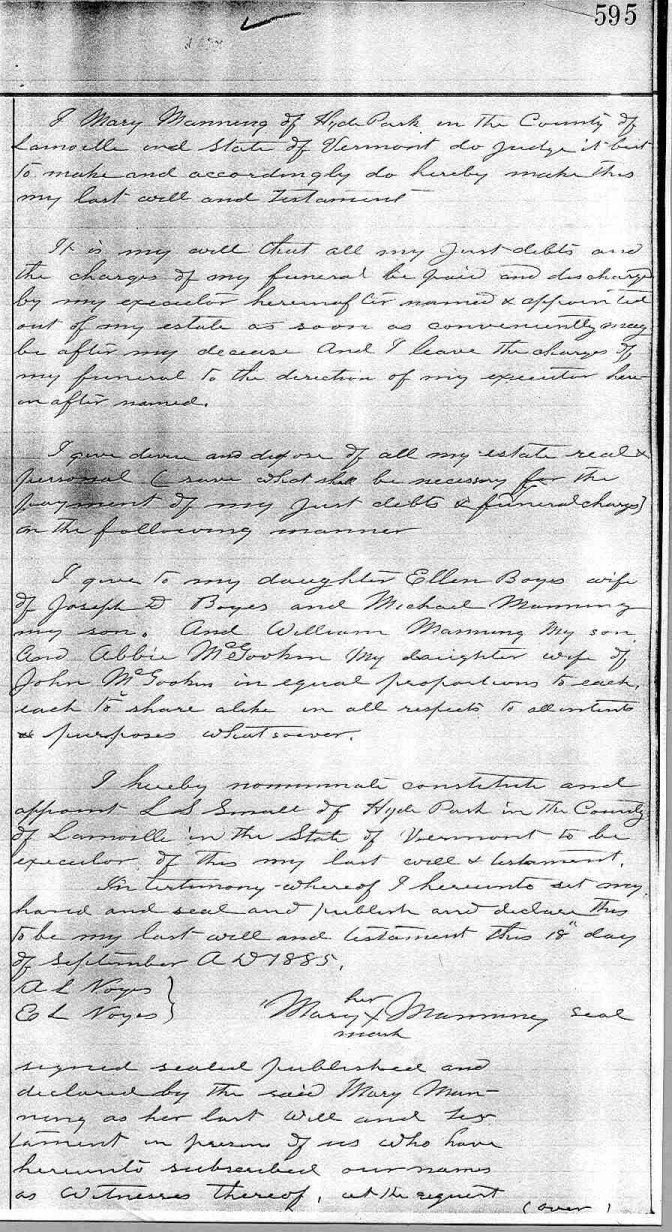 595
I Mary Manning of Hyde Park in the County of
Lamoille and State of Vermont do judge it best
to make and accordingly do hereby make this
my last will and testament
It is my will that all my just debts and
the charges of my funeral be paid and discharged
by my executor hereinafter named & appointed
out of my estate as soon as conveniently may
be after my decease And I leave the charges of
my funeral to the direction of my executor here-
in after named.
I give devise and dispose of all my estate real &
personal (save what shall be necessary for the
payment of my just debts & funeral charges)
in the following manner
I give to my daughter Ellen Boyes wife
of Joseph D Boyes and Michael Manning
my son. And William Manning My son
And Abbie McGookin My daughter wife of
John McGookin in equal proportions to each,
each to share alike in all respects to all intents
& purposes whatsoever.
I hereby nominate constitute and
appoint L S Small of Hyde Park in the County
of Lamoille in the State of Vermont to be
executor of this my last will & testament.
In testimony whereof I hereunto set my
hand and seal and publish and declare this
to be my last will and testament this 18" day
of September A D 1885.
A L Noyes }
E L Noyes }
her
Mary X Manning seal
mark
signed sealed published and
declared by the said Mary Man-
ning as her last will and tes
tament in presen of us who have
hereunto subscribed our names
as Witnesses thereof, at the request
(over)